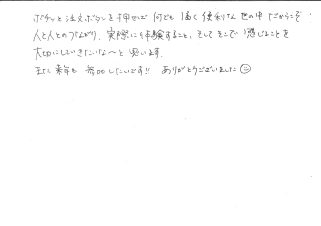 ポチッと注文ボタンを押せば何でも届く便利な世の中だからこそ、
人と人とのつながり、実際に体験すること、そしてそこで感じることを
大切にしていきたいな〜と思います。
また来年も参加したいです!! ありがとうございました☺